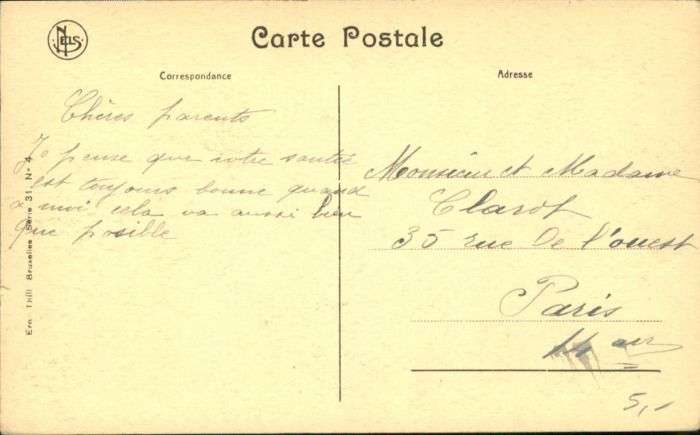 NELS
Carte Postale
Correspondance
Adresse
Chères parents
Je pense que votre santée
est toujours bonne quand
a moi cela va aussi bien
que posible
Monsieur et Madame
Clarot
35 rue De l'ouest
Paris
14 arr
5,-
Ern. Thill Bruxelles Série 31. No 4